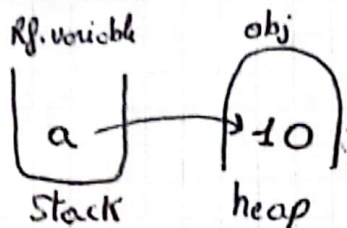 Rf. variable
obj
a
10
Stack
heap